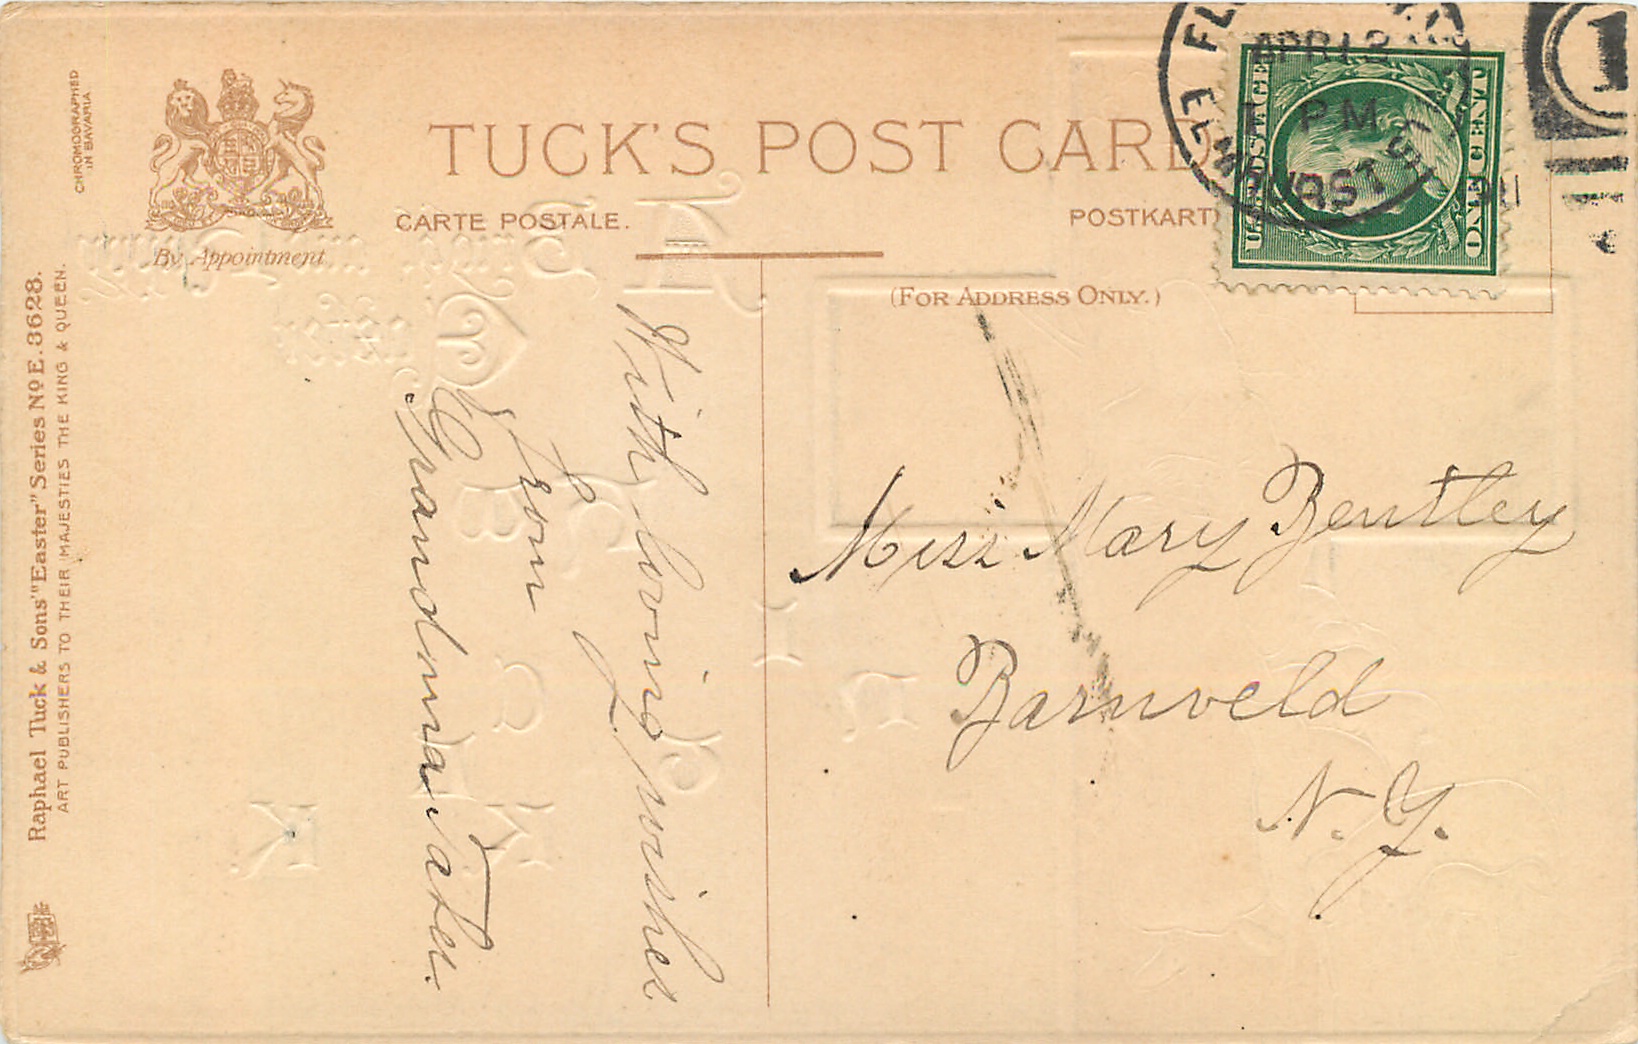 CHROMOGRAPHED
IN BAVARIA
By Appointment
TUCK'S POST CARD
CARTE POSTALE.
POSTKART
(FOR ADDRESS ONLY.)
Raphael Tuck & Sons' "Easter" Series No E. 3628.
ART PUBLISHERS TO THEIR MAJESTIES THE KING & QUEEN.
APR 12
PM
ELMHURST
U.S. POSTAGE
ONE CENT
1
With loving wishes
from
Grandma
Miss Mary Bentley
Barnveld
N.Y.